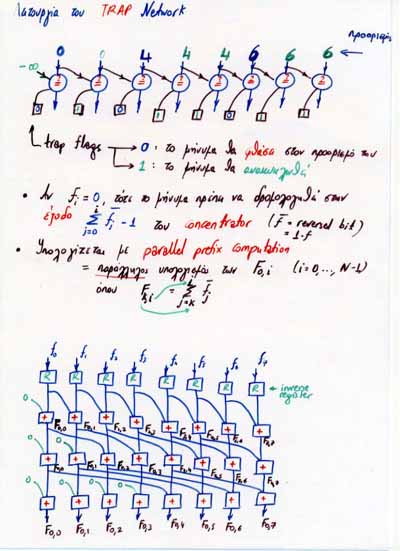 Λειτουργία του TRAP Network
0 0 4 4 4 6 6 6 προορισμός
-∞ = = = = = = = =
0 1 0 1 1 0 1 1
trap flags → 0 : το μήνυμα θα φθάσει στον προορισμό του
→ 1 : το μήνυμα θα ανακυκλωθεί
• Αν fi = 0, τότε το μήνυμα πρέπει να δρομολογηθεί στην
έξοδο Σ j=0 i f̄j - 1 του concentrator (f̄ = reversed bit)
= 1-f
• Υπολογίζεται με parallel prefix computation
= παράλληλος υπολογισμός των F0,i (i=0,..., N-1)
όπου Fk,i = Σ j=k i f̄j
f0 f1 f2 f3 f4 f5 f6 f7
R R R R R R R R ← inverse
register
0 + + + + + + + +
F0,0 F0,1 F1,2 F2,3 F3,4 F4,5 F5,6 F6,7
0 0 + + + + + + + +
0 0 0 0 + + + + + + + +
F0,0 F0,1 F0,2 F0,3 F0,4 F0,5 F0,6 F0,7